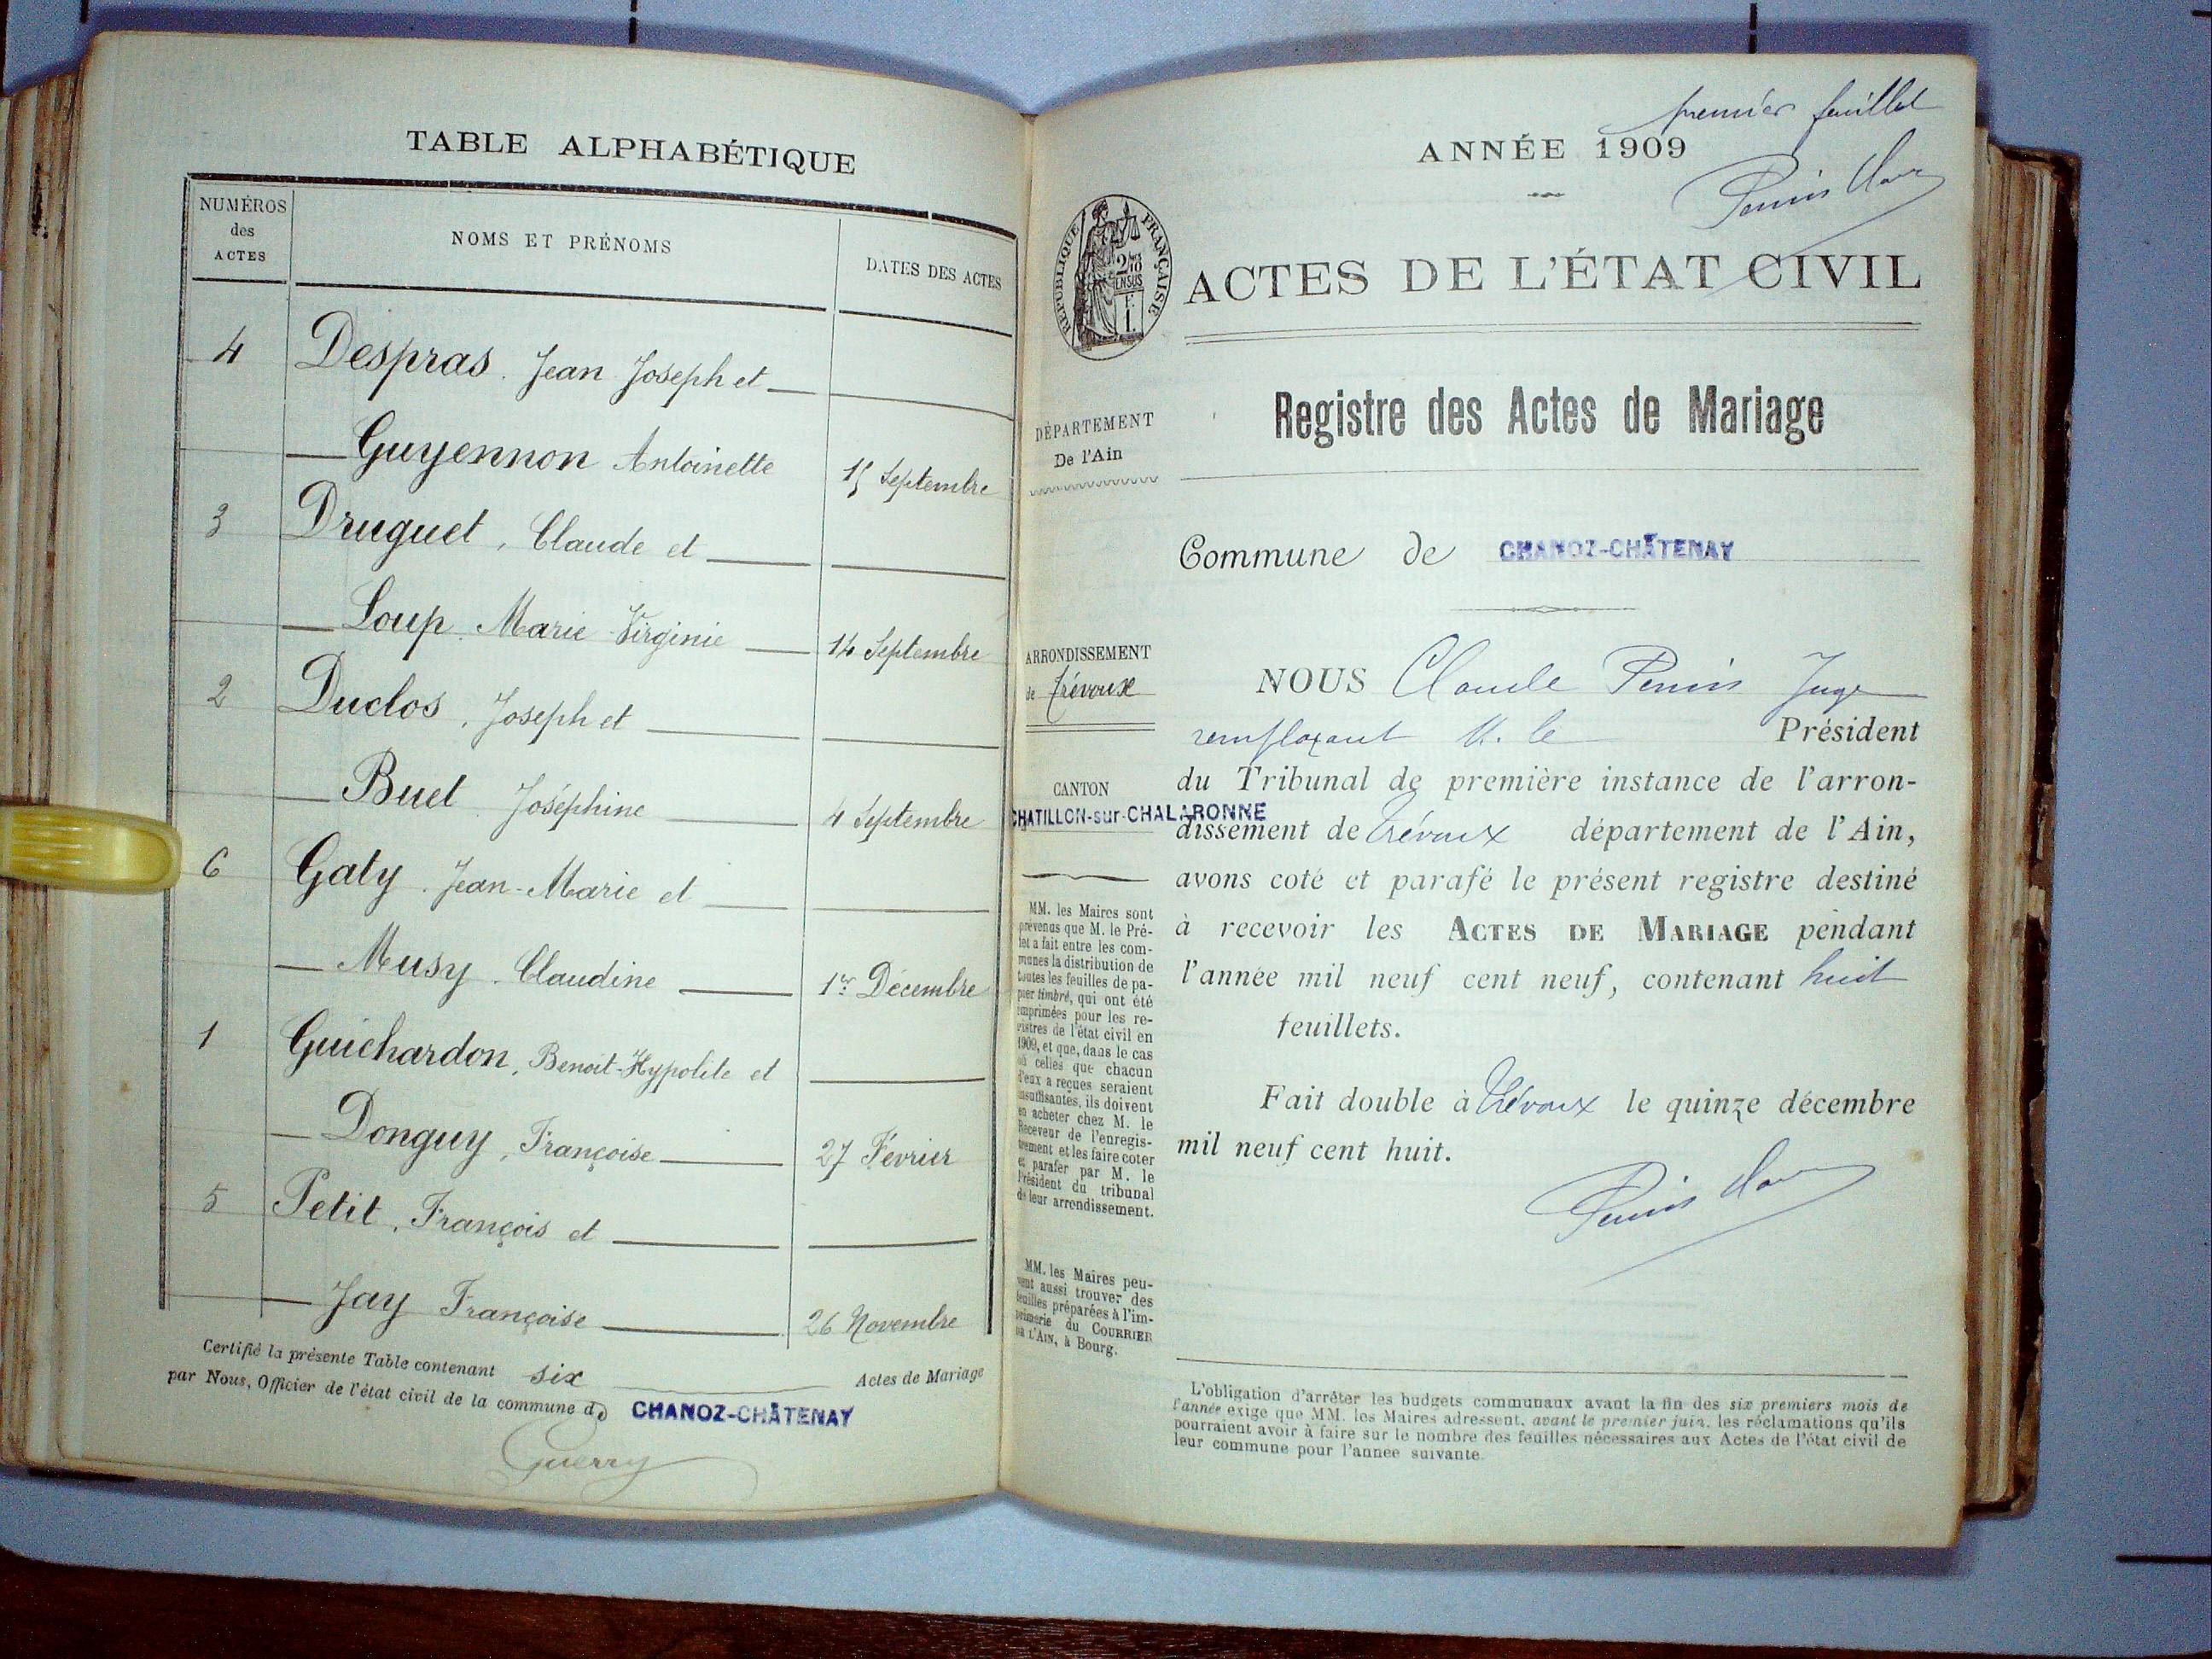 TABLE ALPHABÉTIQUE
NUMÉROS
des
ACTES
NOMS ET PRÉNOMS
DATES DES ACTES
4 Despras, Jean Joseph et
Guyennon Antoinette 15 Septembre
3 Druguet, Claude et
Loup, Marie Virginie 14 Septembre
2 Duclos, Joseph et
Buet Joséphine 4 Septembre
6 Gaty, Jean-Marie et
Musy, Claudine 1er Décembre
1 Guichardon, Benoit-Hypolite et
Donguy, Françoise 27 Février
5 Petit, François et
Jay Françoise 26 Novembre
Certifié la présente Table contenant six Actes de Mariage
par Nous, Officier de l'état civil de la commune de CHANOZ-CHÂTENAY
Guerry
premier feuillet
ANNÉE 1909
RÉPUBLIQUE FRANÇAISE
ACTES DE L'ÉTAT CIVIL
Registre des Actes de Mariage
DÉPARTEMENT
De l'Ain
Commune de CHANOZ-CHÂTENAY
ARRONDISSEMENT
de Trévoux
CANTON
CHATILLON-sur-CHALARONNE
MM. les Maires sont
prévenus que M. le Pré-
fet a fait entre les com-
munes la distribution de
toutes les feuilles de pa-
pier timbré, qui ont été
imprimées pour les re-
gistres de l'état civil en
1909, et que, dans le cas
où celles que chacun
d'eux a reçues seraient
insuffisantes, ils doivent
en acheter chez M. le
Receveur de l'enregis-
trement et les faire coter
et parafer par M. le
Président du tribunal
de leur arrondissement.
MM. les Maires peu-
vent aussi trouver des
feuilles préparées à l'im-
primerie du COURRIER
DE L'AIN, à Bourg.
NOUS Claude Juge
remplaçant M. le Président
du Tribunal de première instance de l'arron-
dissement de Trévoux département de l'Ain,
avons coté et parafé le présent registre destiné
à recevoir les ACTES DE MARIAGE pendant
l'année mil neuf cent neuf, contenant huit
feuillets.
Fait double à Trévoux le quinze décembre
mil neuf cent huit.
L'obligation d'arrêter les budgets communaux avant la fin des six premiers mois de
l'année exige que MM. les Maires adressent, avant le premier juin, les réclamations qu'ils
pourraient avoir à faire sur le nombre des feuilles nécessaires aux Actes de l'état civil de
leur commune pour l'année suivante.